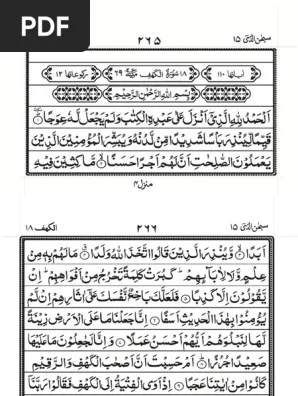 PDF
سبحن الذی ۱۵
۲۶۵
اٰیاتها ۱۱۰
۱۸ سُوْرَةُ الْكَهْفِ مَكِّيَّةٌ ۶۹
رکوعاتها ۱۲
بِسْمِ اللّٰهِ الرَّحْمٰنِ الرَّحِيْمِ
اَلْحَمْدُ لِلّٰهِ الَّذِیْۤ اَنْزَلَ عَلٰی عَبْدِهِ الْكِتٰبَ وَلَمْ یَجْعَلْ لَّهٗ عِوَجًا
قَیِّمًا لِّیُنْذِرَ بَاْسًا شَدِیْدًا مِّنْ لَّدُنْهُ وَیُبَشِّرَ الْمُؤْمِنِیْنَ الَّذِیْنَ
یَعْمَلُوْنَ الصّٰلِحٰتِ اَنَّ لَهُمْ اَجْرًا حَسَنًا مَّاكِثِیْنَ فِیْهِ
منزل۴
الكهف ۱۸
۲۶۶
سبحن الذی ۱۵
اَبَدًا وَّیُنْذِرَ الَّذِیْنَ قَالُوا اتَّخَذَ اللّٰهُ وَلَدًا مَا لَهُمْ بِهٖ مِنْ
عِلْمٍ وَّلَا لِاٰبَآئِهِمْ كَبُرَتْ كَلِمَةً تَخْرُجُ مِنْ اَفْوَاهِهِمْ اِنْ
یَّقُوْلُوْنَ اِلَّا كَذِبًا فَلَعَلَّكَ بَاخِعٌ نَّفْسَكَ عَلٰۤی اٰثَارِهِمْ اِنْ لَّمْ
یُؤْمِنُوْا بِهٰذَا الْحَدِیْثِ اَسَفًا اِنَّا جَعَلْنَا مَا عَلَی الْاَرْضِ زِیْنَةً
لَّهَا لِنَبْلُوَهُمْ اَیُّهُمْ اَحْسَنُ عَمَلًا وَاِنَّا لَجٰعِلُوْنَ مَا عَلَیْهَا
صَعِیْدًا جُرُزًا اَمْ حَسِبْتَ اَنَّ اَصْحٰبَ الْكَهْفِ وَالرَّقِیْمِ
كَانُوْا مِنْ اٰیٰتِنَا عَجَبًا اِذْ اَوَی الْفِتْیَةُ اِلَی الْكَهْفِ فَقَالُوْا رَبَّنَاۤ